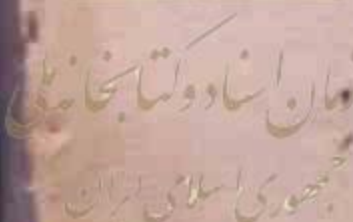 مان اسناد و کتابخانه ملی
جمهوری اسلامی ایران